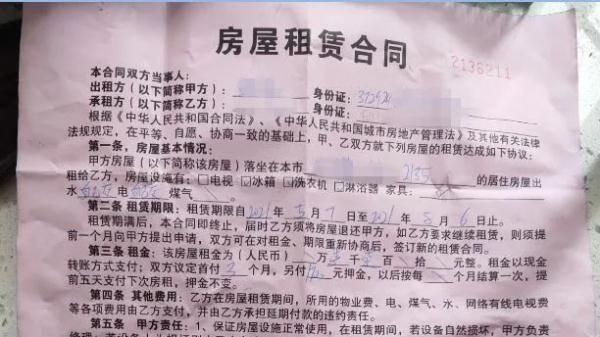 房屋租赁合同
2136211
本合同双方当事人:
出租方(以下简称甲方): 身份证:
承租方(以下简称乙方): 身份证:
根据《中华人民共和国合同法》、《中华人民共和国城市房地产管理法》及其他有关法律
法规规定,在平等、自愿、协商一致的基础上,甲、乙双方就下列房屋的租赁达成如下协议:
第一条,房屋基本情况:
甲方房屋(以下简称该房屋)落坐在本市 2135 的居住房屋出
租给乙方,房屋设施有:□电视 □冰箱 □洗衣机 □淋浴器 家具:
水 电 煤气 。
第二条 租赁期限:租赁期限自2021年5月7日至2021年8月6日止。
租赁期满后,本合同即终止,届时乙方须将房屋退还甲方,如乙方要求继续租赁,则须提
前一个月向甲方提出申请,双方可在对租金、期限重新协商后,签订新的租赁合同。
第三条 租金:该房屋租金为(人民币) 万 仟 佰 拾 元整。租金以现金
转账方式支付;双方议定首付3个月,另付 元押金,以后按每 个月结算一次,提
前五天支付下次房租,押金不变。
第四条 其他费用:乙方在房屋租赁期间,所用的物业费、电、煤气、水、网络有线电视费
等各项费用由乙方支付,并由乙方承担延期付款的违约责任。
第五条 甲方责任:1、保证房屋设施正常使用,在租赁期间,若设备自然损坏,甲方负责